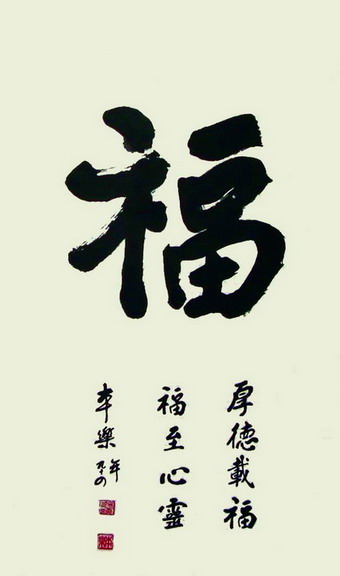 福
厚德載福
福至心靈
李樂年